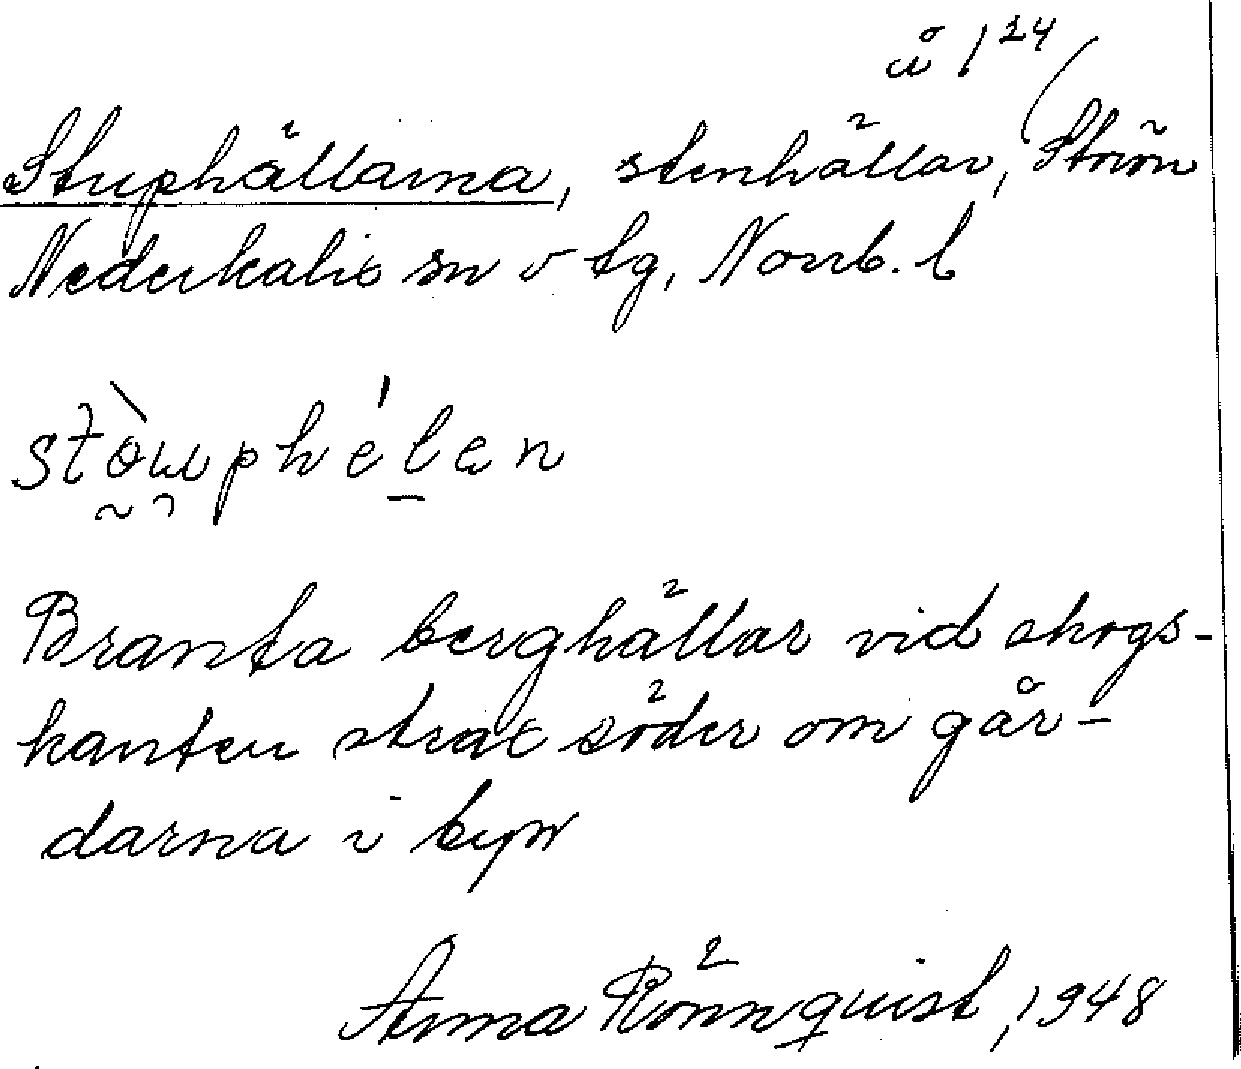 124
Stuphällarna, stenhällar, Ström
Nederkalix sn o tg, Norrb. l
stòuphélen
Branta berghällar vid skogs-
kanten strax söder om går-
darna i byn
Anna Rönnquist, 1948